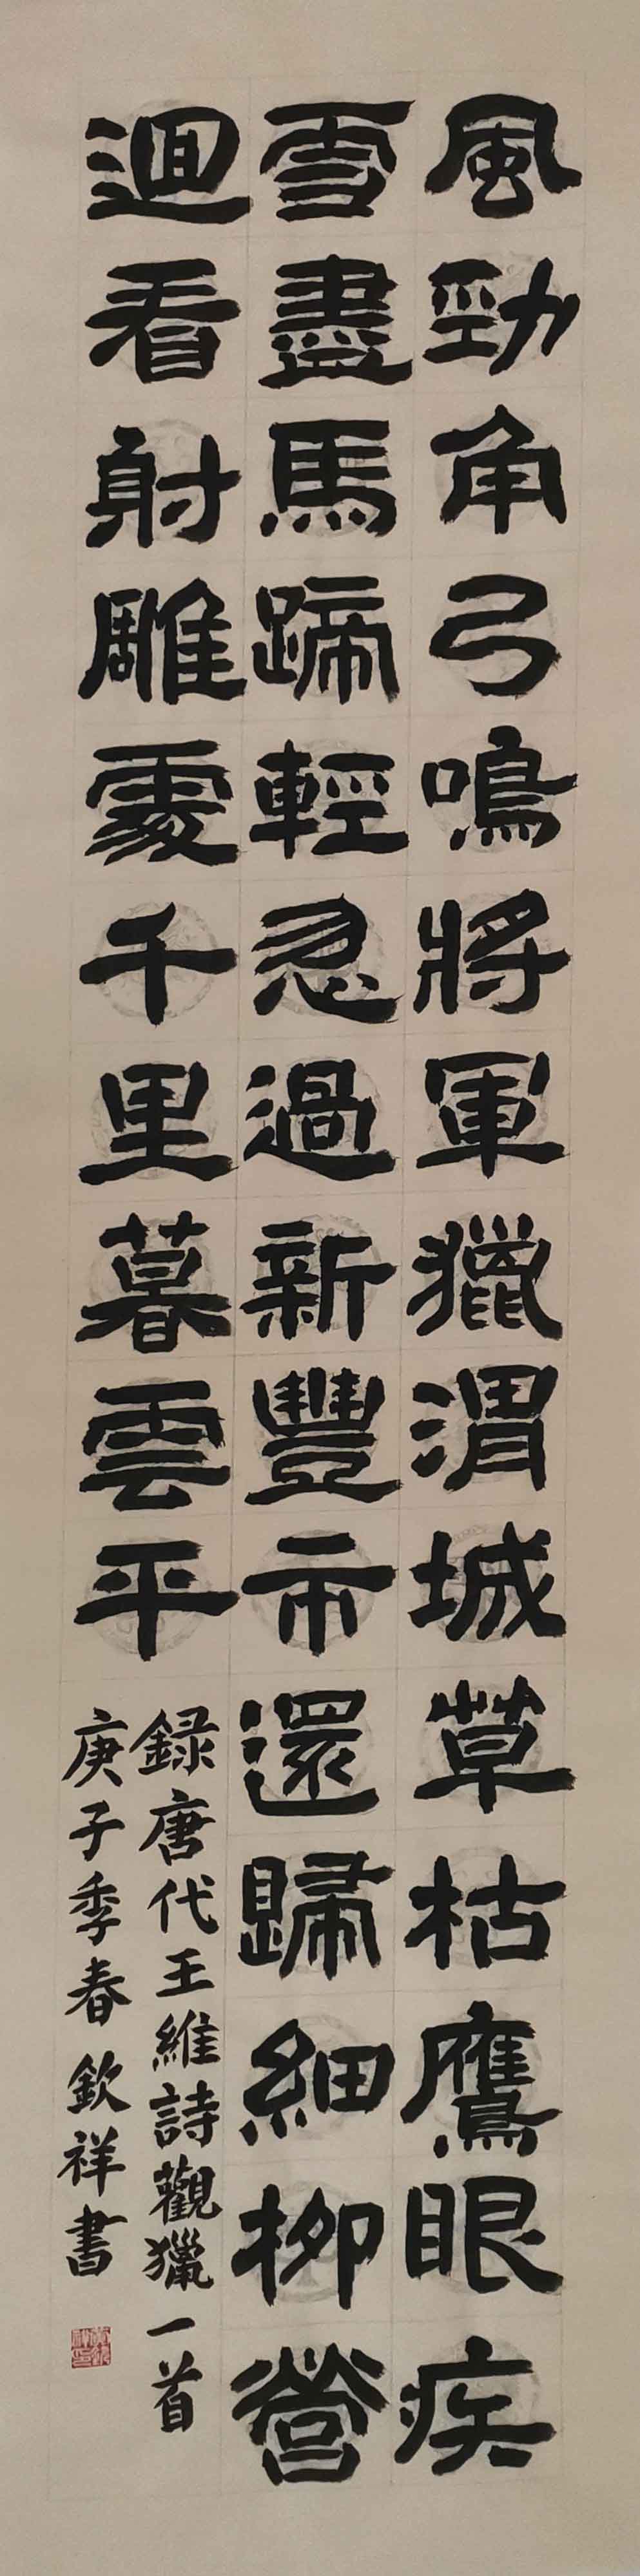 風勁角弓鳴將軍獵渭城草枯鷹眼疾
雪盡馬蹄輕忽過新豐市還歸細柳營
迴看射雕處千里暮雲平
録唐代王維詩觀獵一首
庚子季春欽祥書